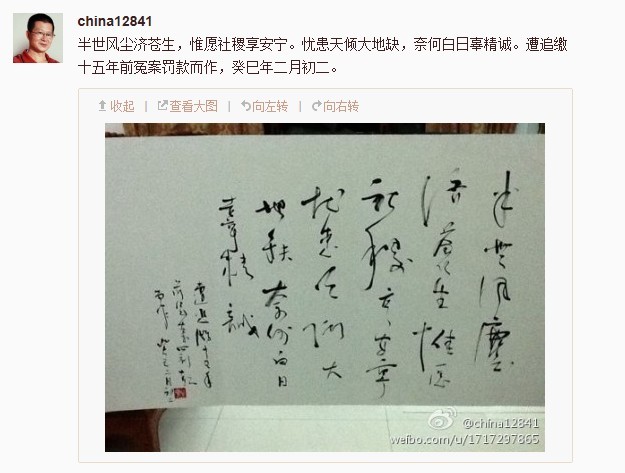 china12841
半世风尘济苍生，惟愿社稷享安宁。忧患天倾大地缺，奈何白日辜精诚。遭追缴
十五年前冤案罚款而作，癸巳年二月初二。
收起 | 查看大图 | 向左转 | 向右转
半世风塵
济苍生惟愿
社稷享安宁
忧患天倾大
地缺奈何白日
辜精诚
遭追缴十五年
前冤案罚款
而作 癸巳二月初二
@china12841
weibo.com/u/1717297865